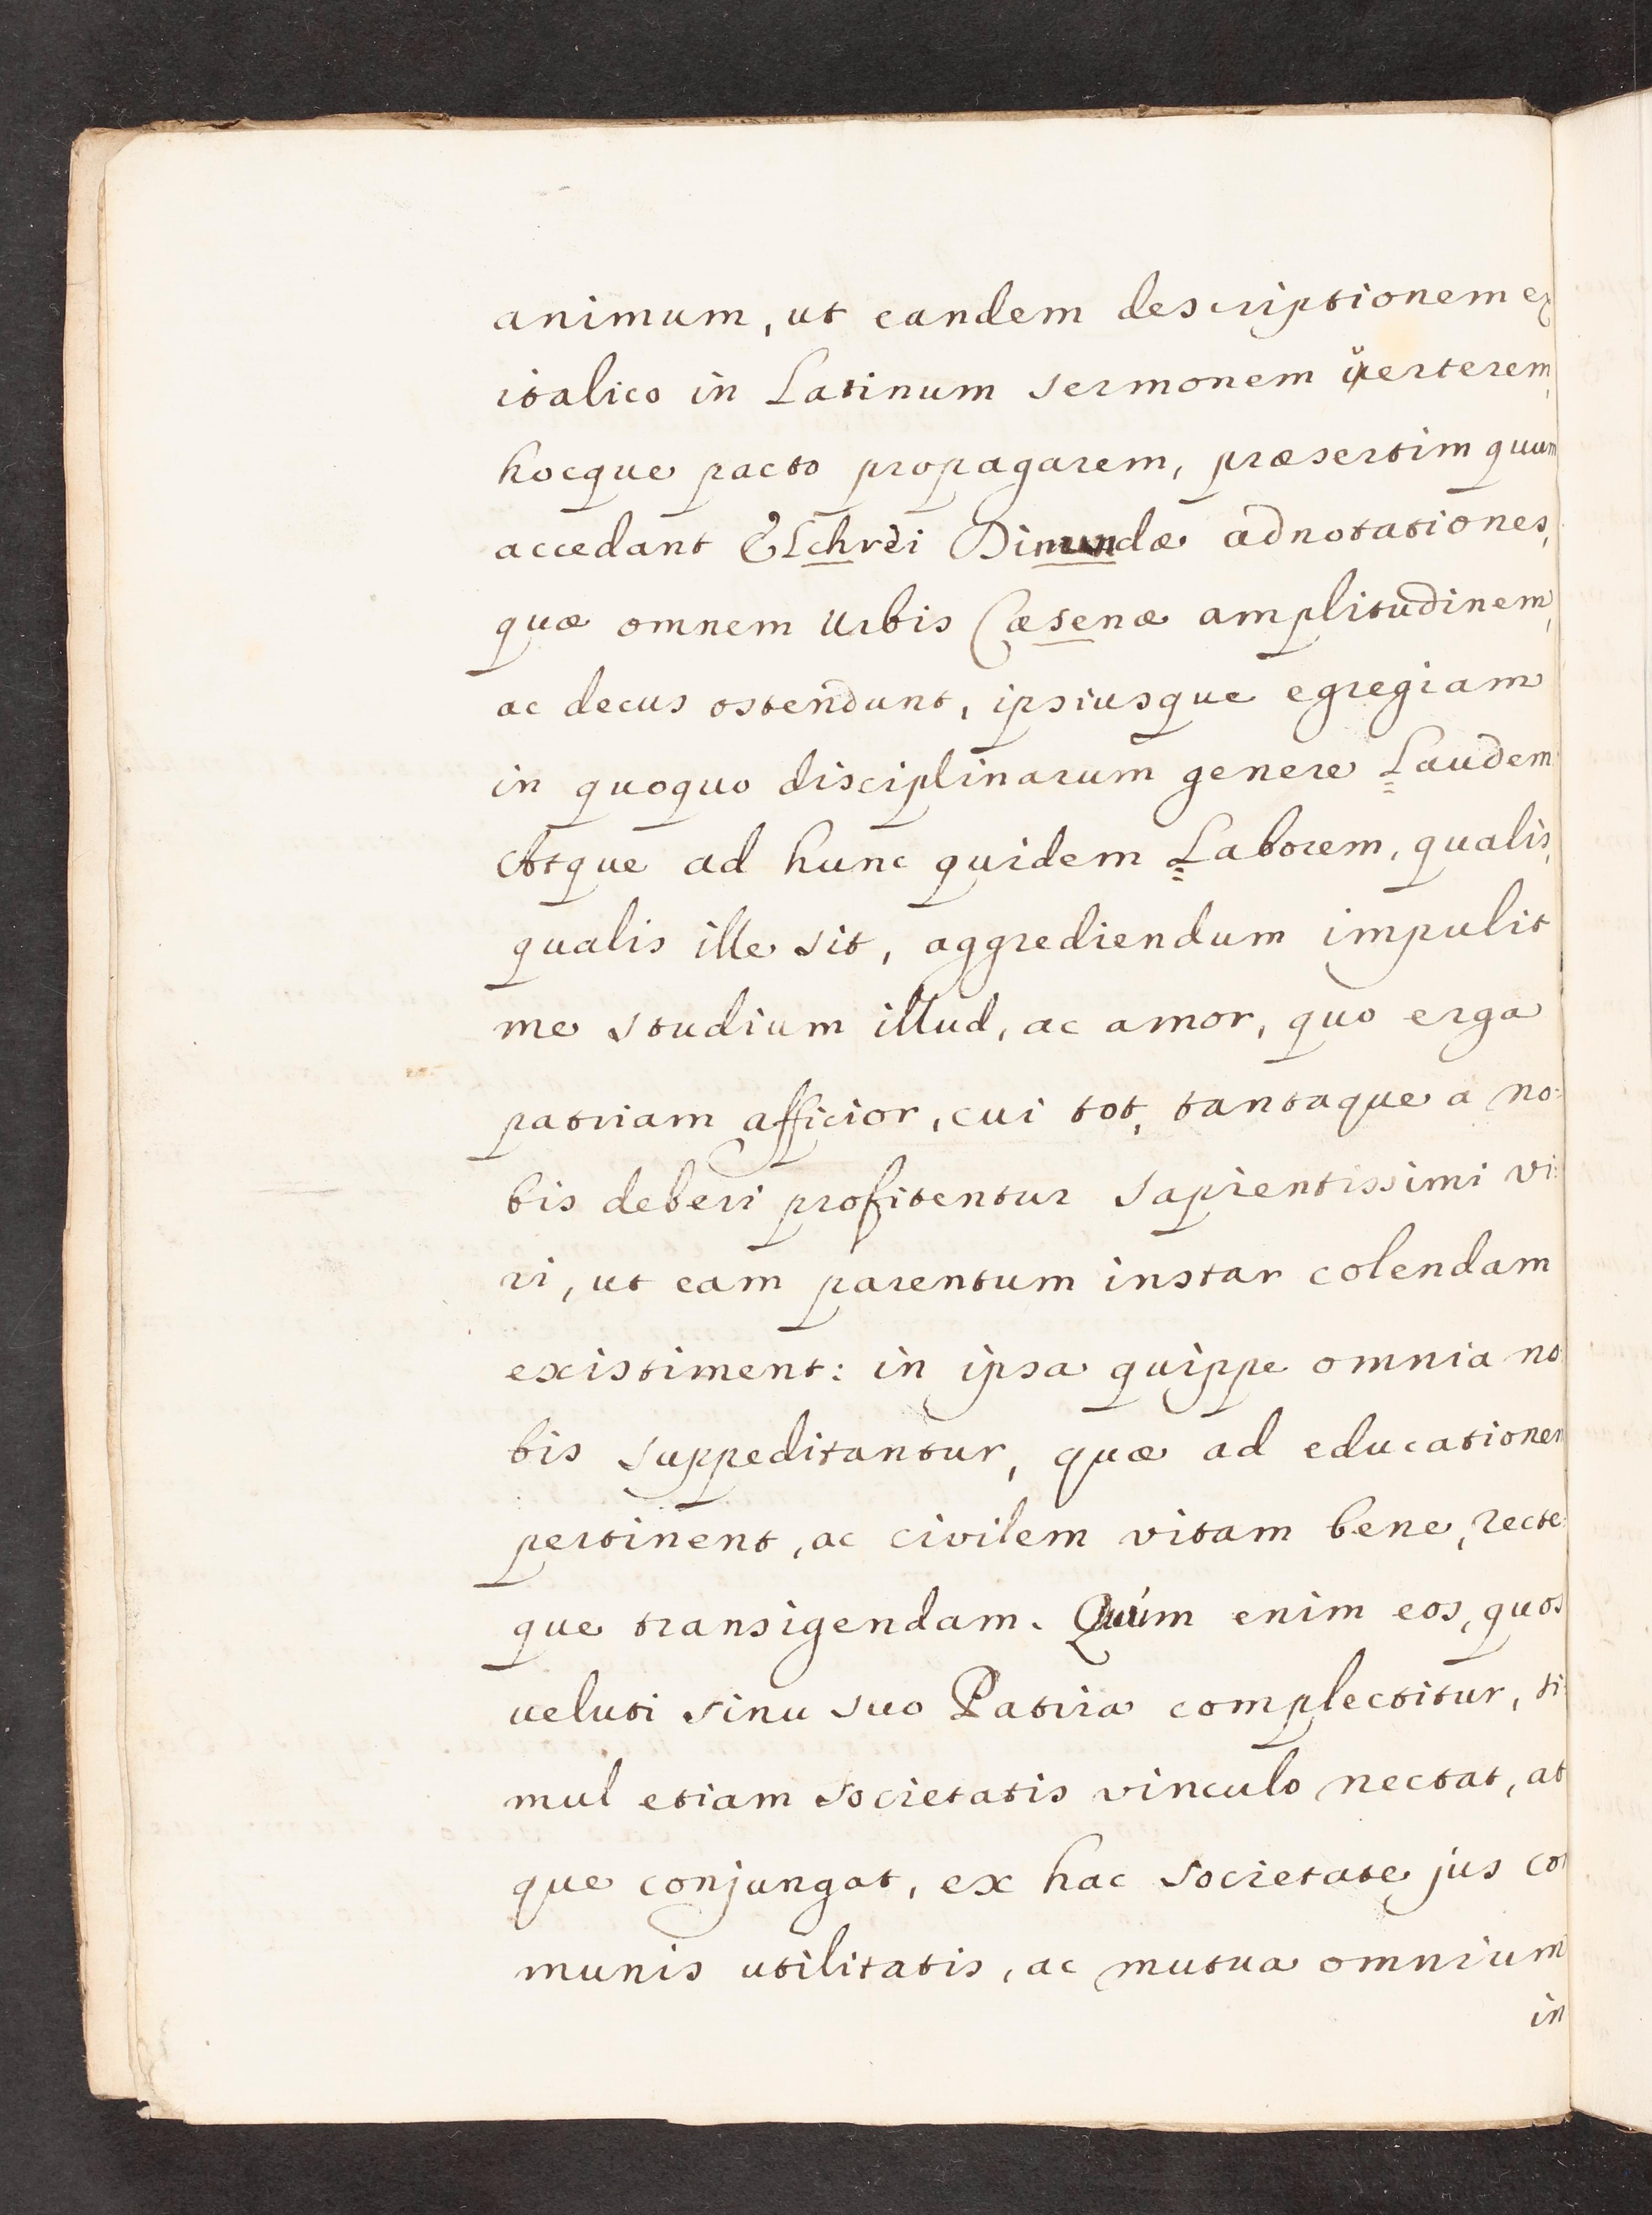 animum, ut eandem descriptionem ex
italico in Latinum sermonem verterem,
hocque pacto propagarem, præsertim quum
accedant adnotationes,
quæ omnem Urbis Cæsenæ amplitudinem,
ac decus ostendunt, ipsiusque egregiam
in quoquo disciplinarum genere Laudem
Atque ad hunc quidem Laborem, qualis,
qualis ille sit, aggrediendum impulit
me studium illud, ac amor, quo erga
patriam afficior, cui tot, tantaque a no:
bis deberi profitentur sapientissimi vi:
ri, ut eam parentum instar colendam
existiment: in ipsa quippe omnia no
bis suppeditantur, quæ ad educationem
pertinent, ac civilem vitam bene, recte:
que transigendam. Quúm enim eos, quos
veluti sinu suo Patria complectitur, si:
mul etiam societatis vinculo nectat, at
que conjungat, ex hac societate jus co
munis utilitatis, ac mutua omnium
in